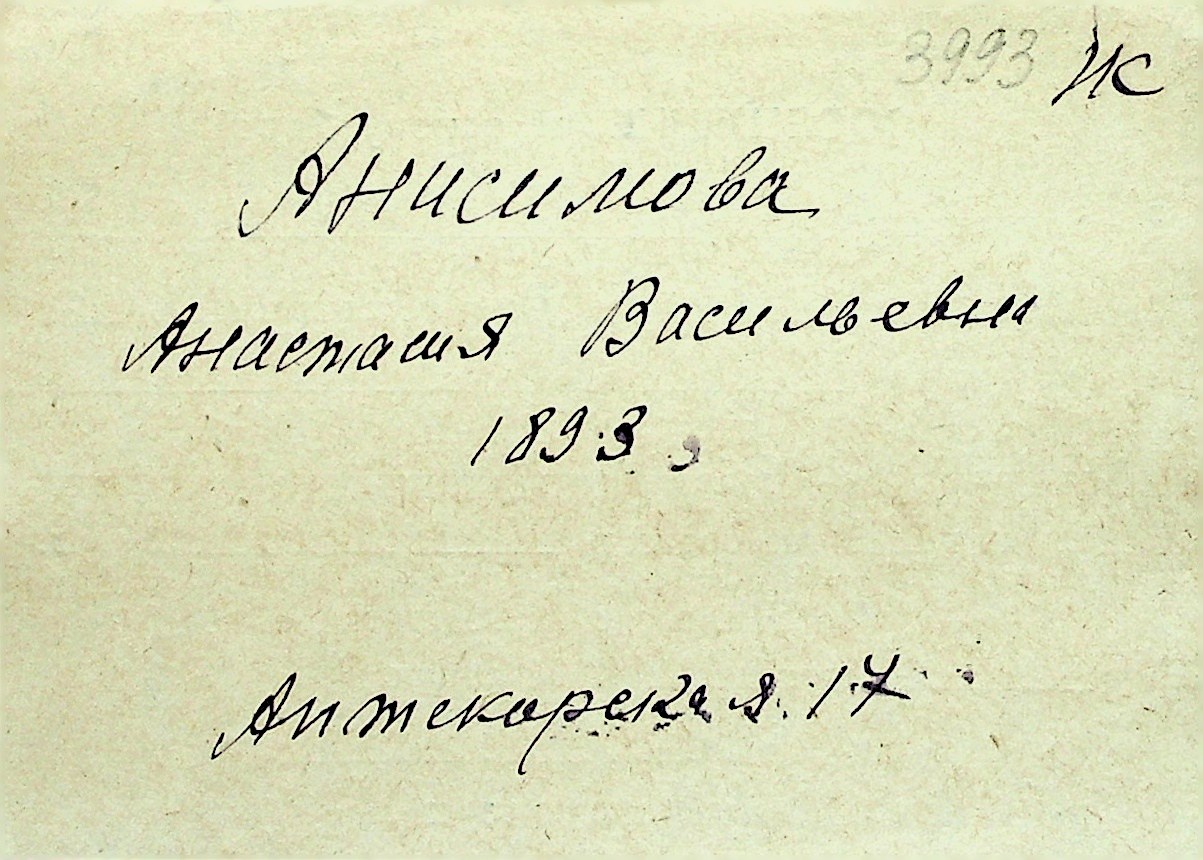 3993 ИС
Анисимова
Анастасия Васильевна
1893
Аптекарская 17